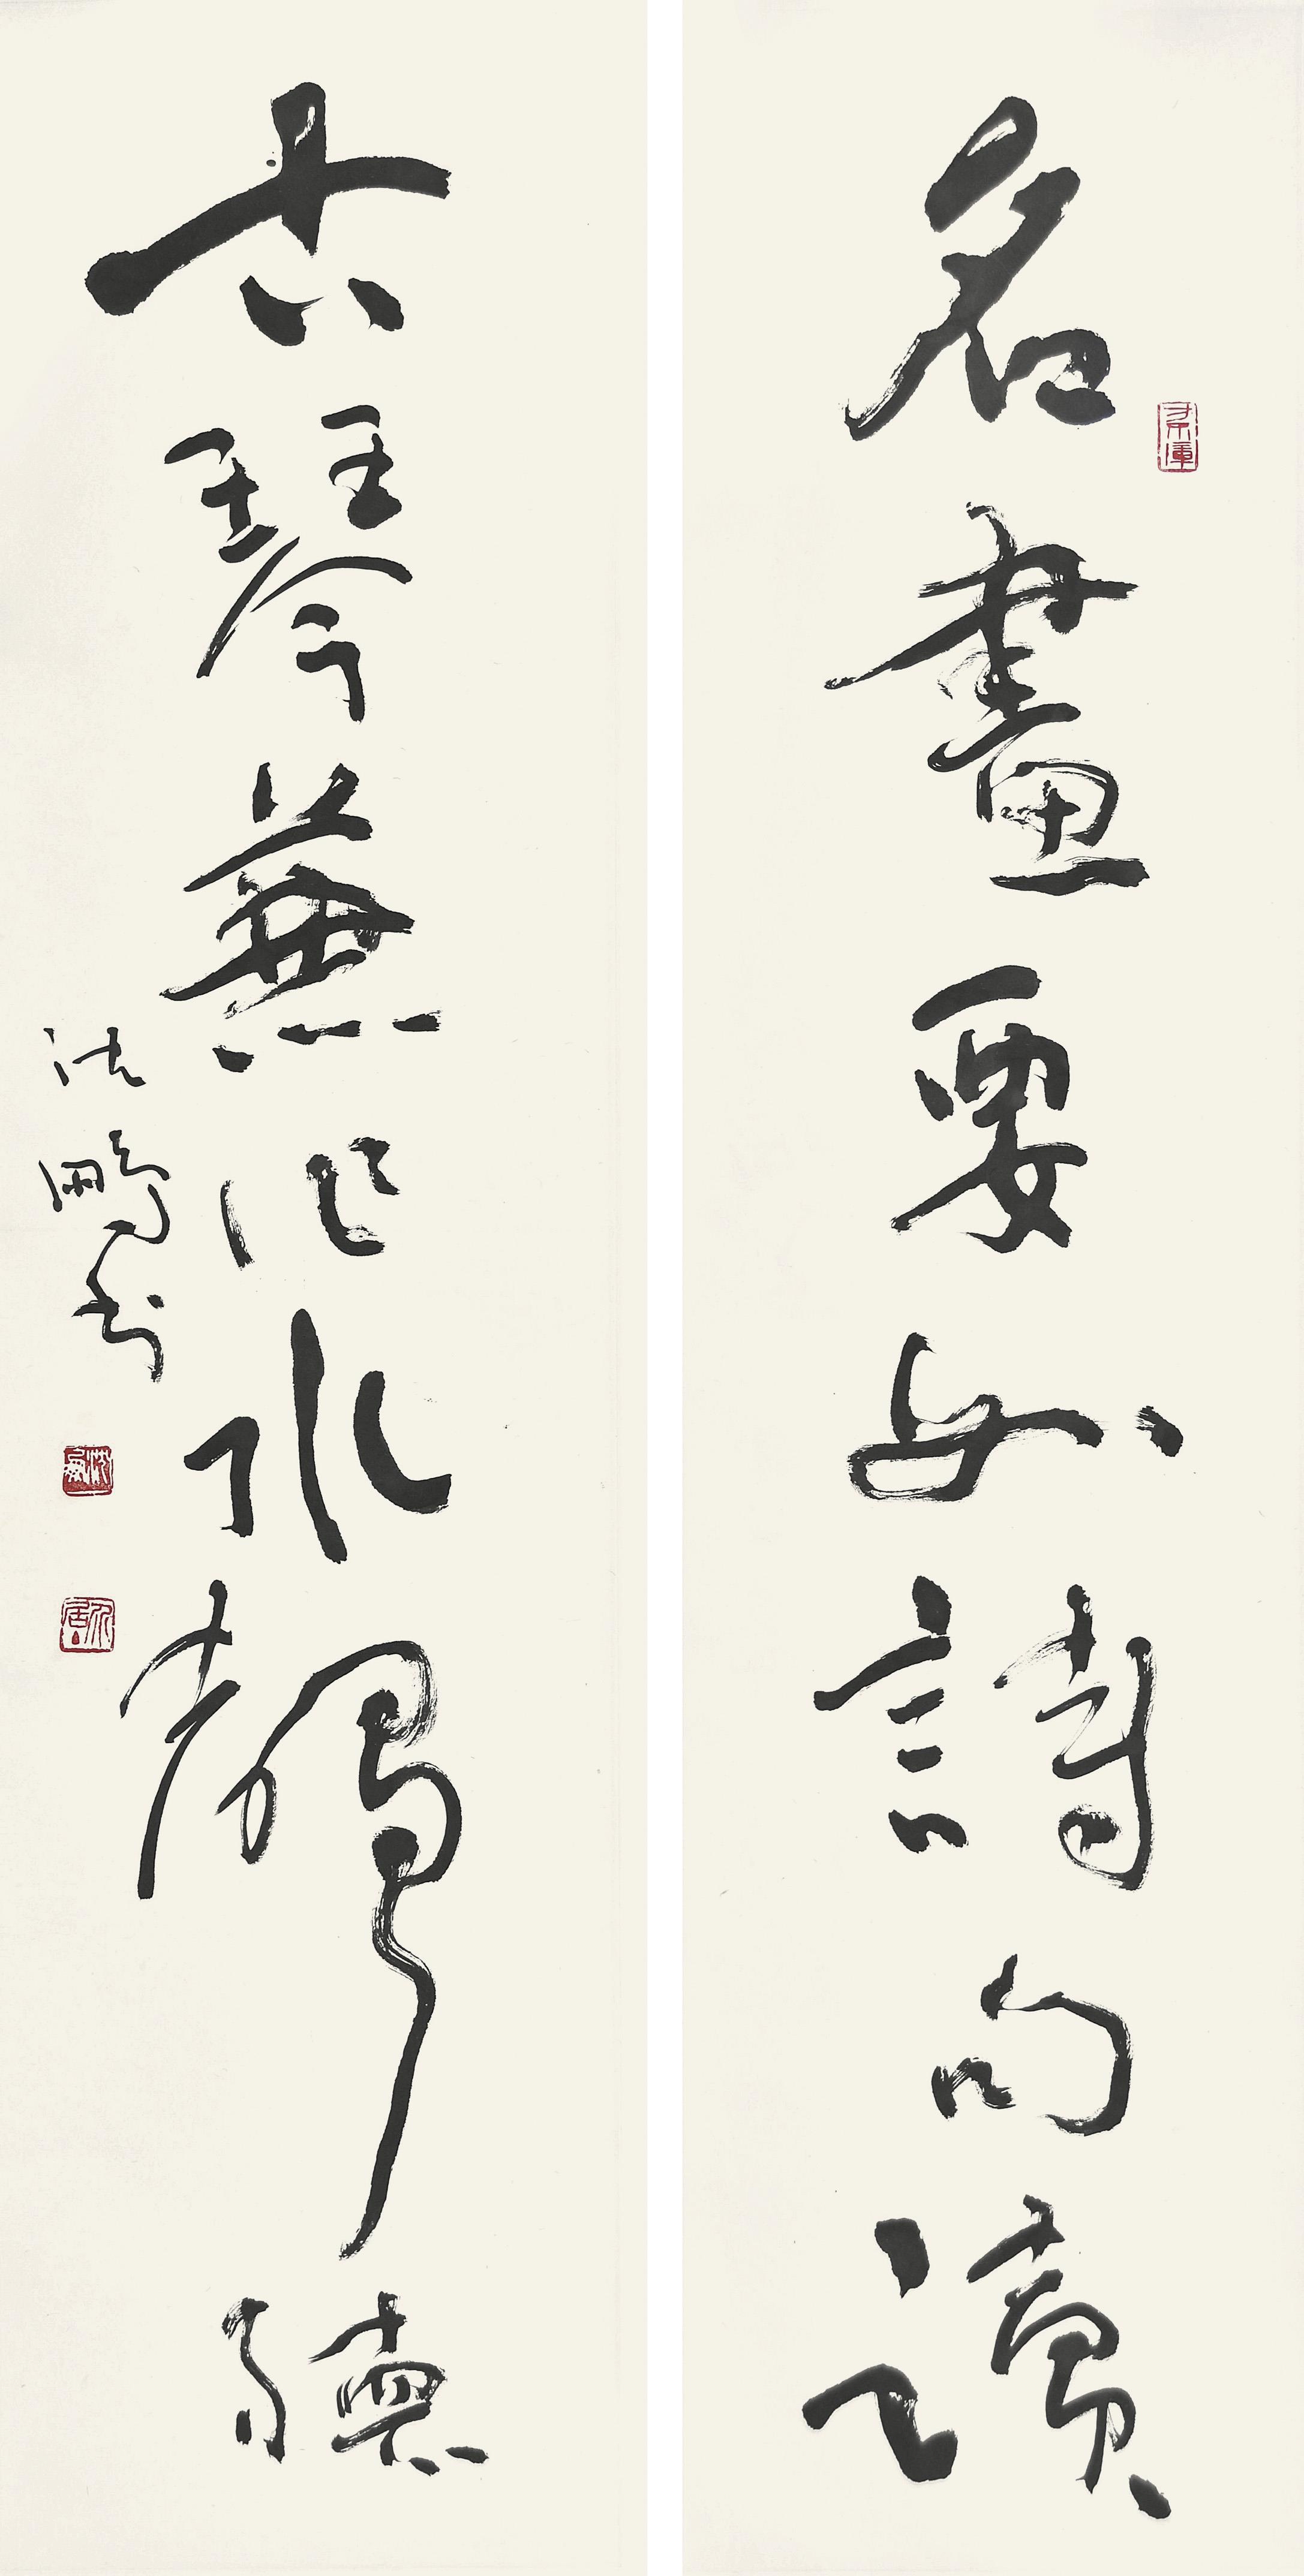 名畫要如詩句讀
古琴兼作水聲聽
沈鵬書